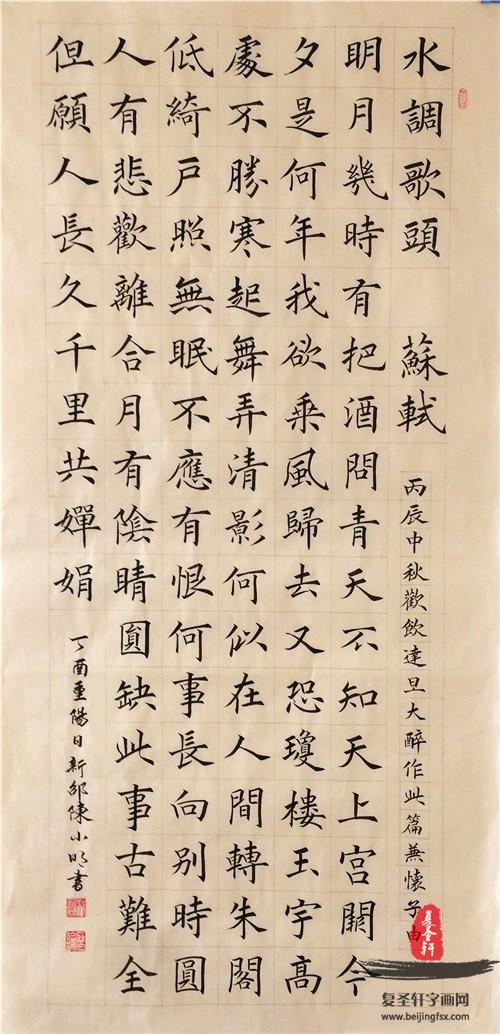 水調歌頭 蘇軾 丙辰中秋歡飲達旦大醉作此篇兼懷子由
明月幾時有把酒問青天不知天上宮闕今
夕是何年我欲乘風歸去又恐瓊樓玉宇高
處不勝寒起舞弄清影何似在人間轉朱閣
低綺戶照無眠不應有恨何事長向別時圓
人有悲歡離合月有陰晴圓缺此事古難全
但願人長久千里共嬋娟 丁酉重陽日新邵陳小明書
复圣轩
复圣轩字画网
www.beijingfsx.com